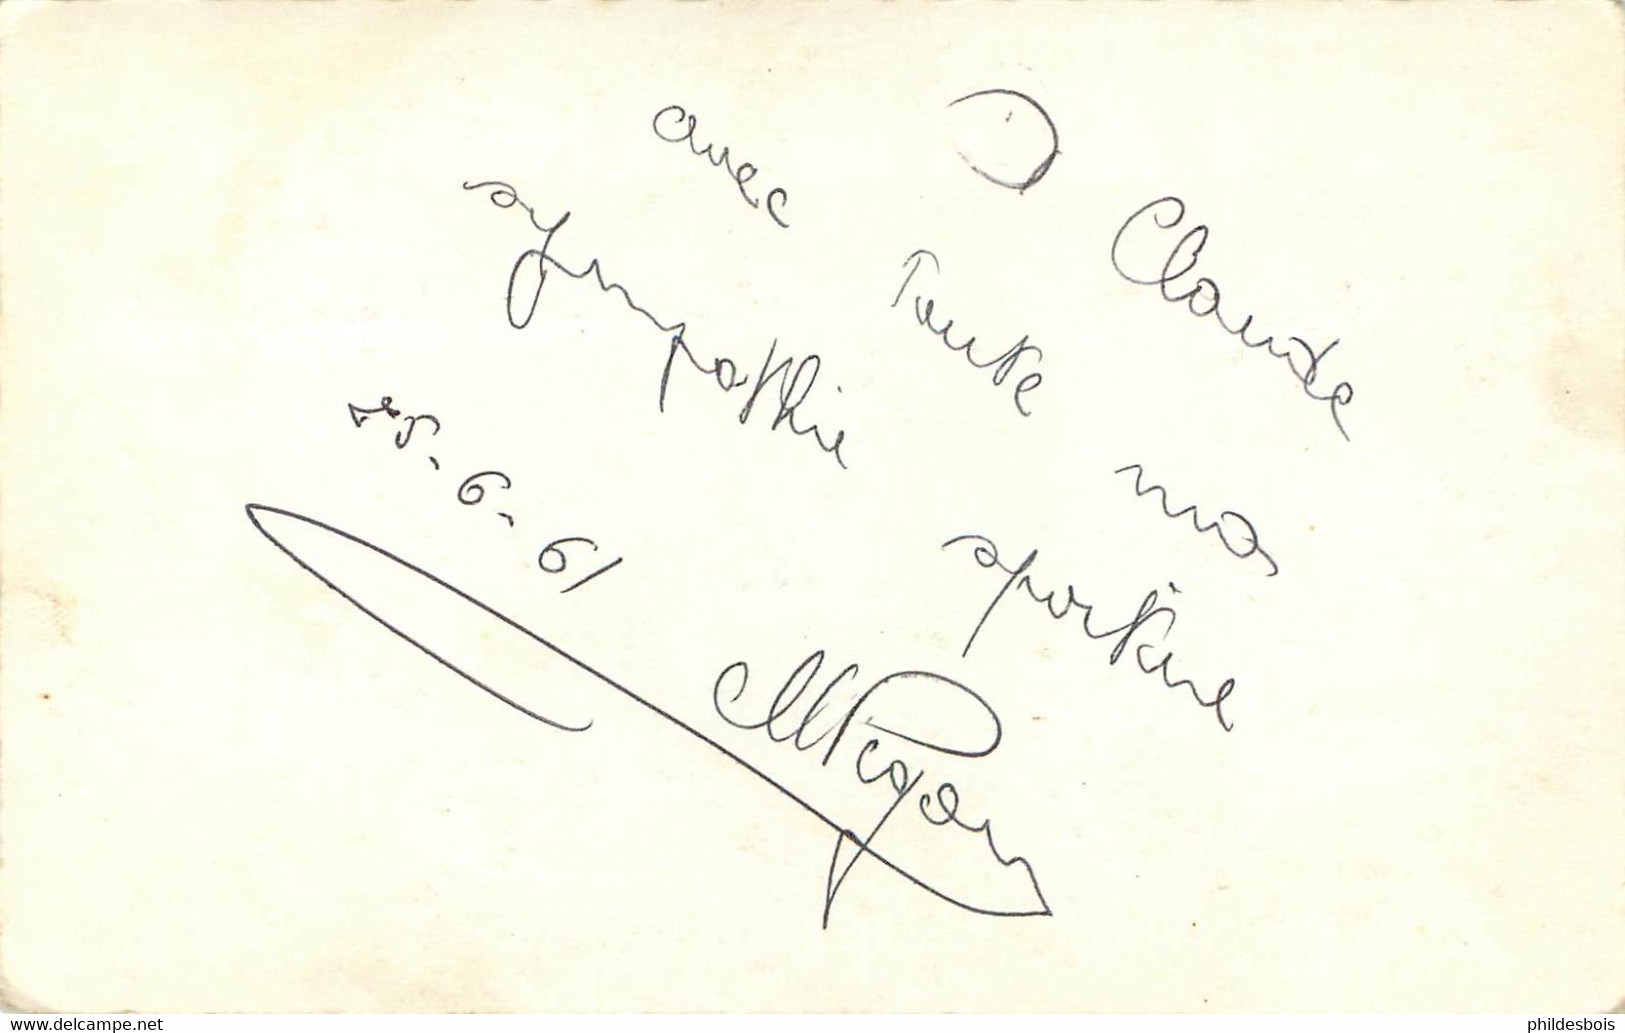 à Claude
avec toute ma
sympathie sportive
25-6-61
www.delcampe.net
phildesbois